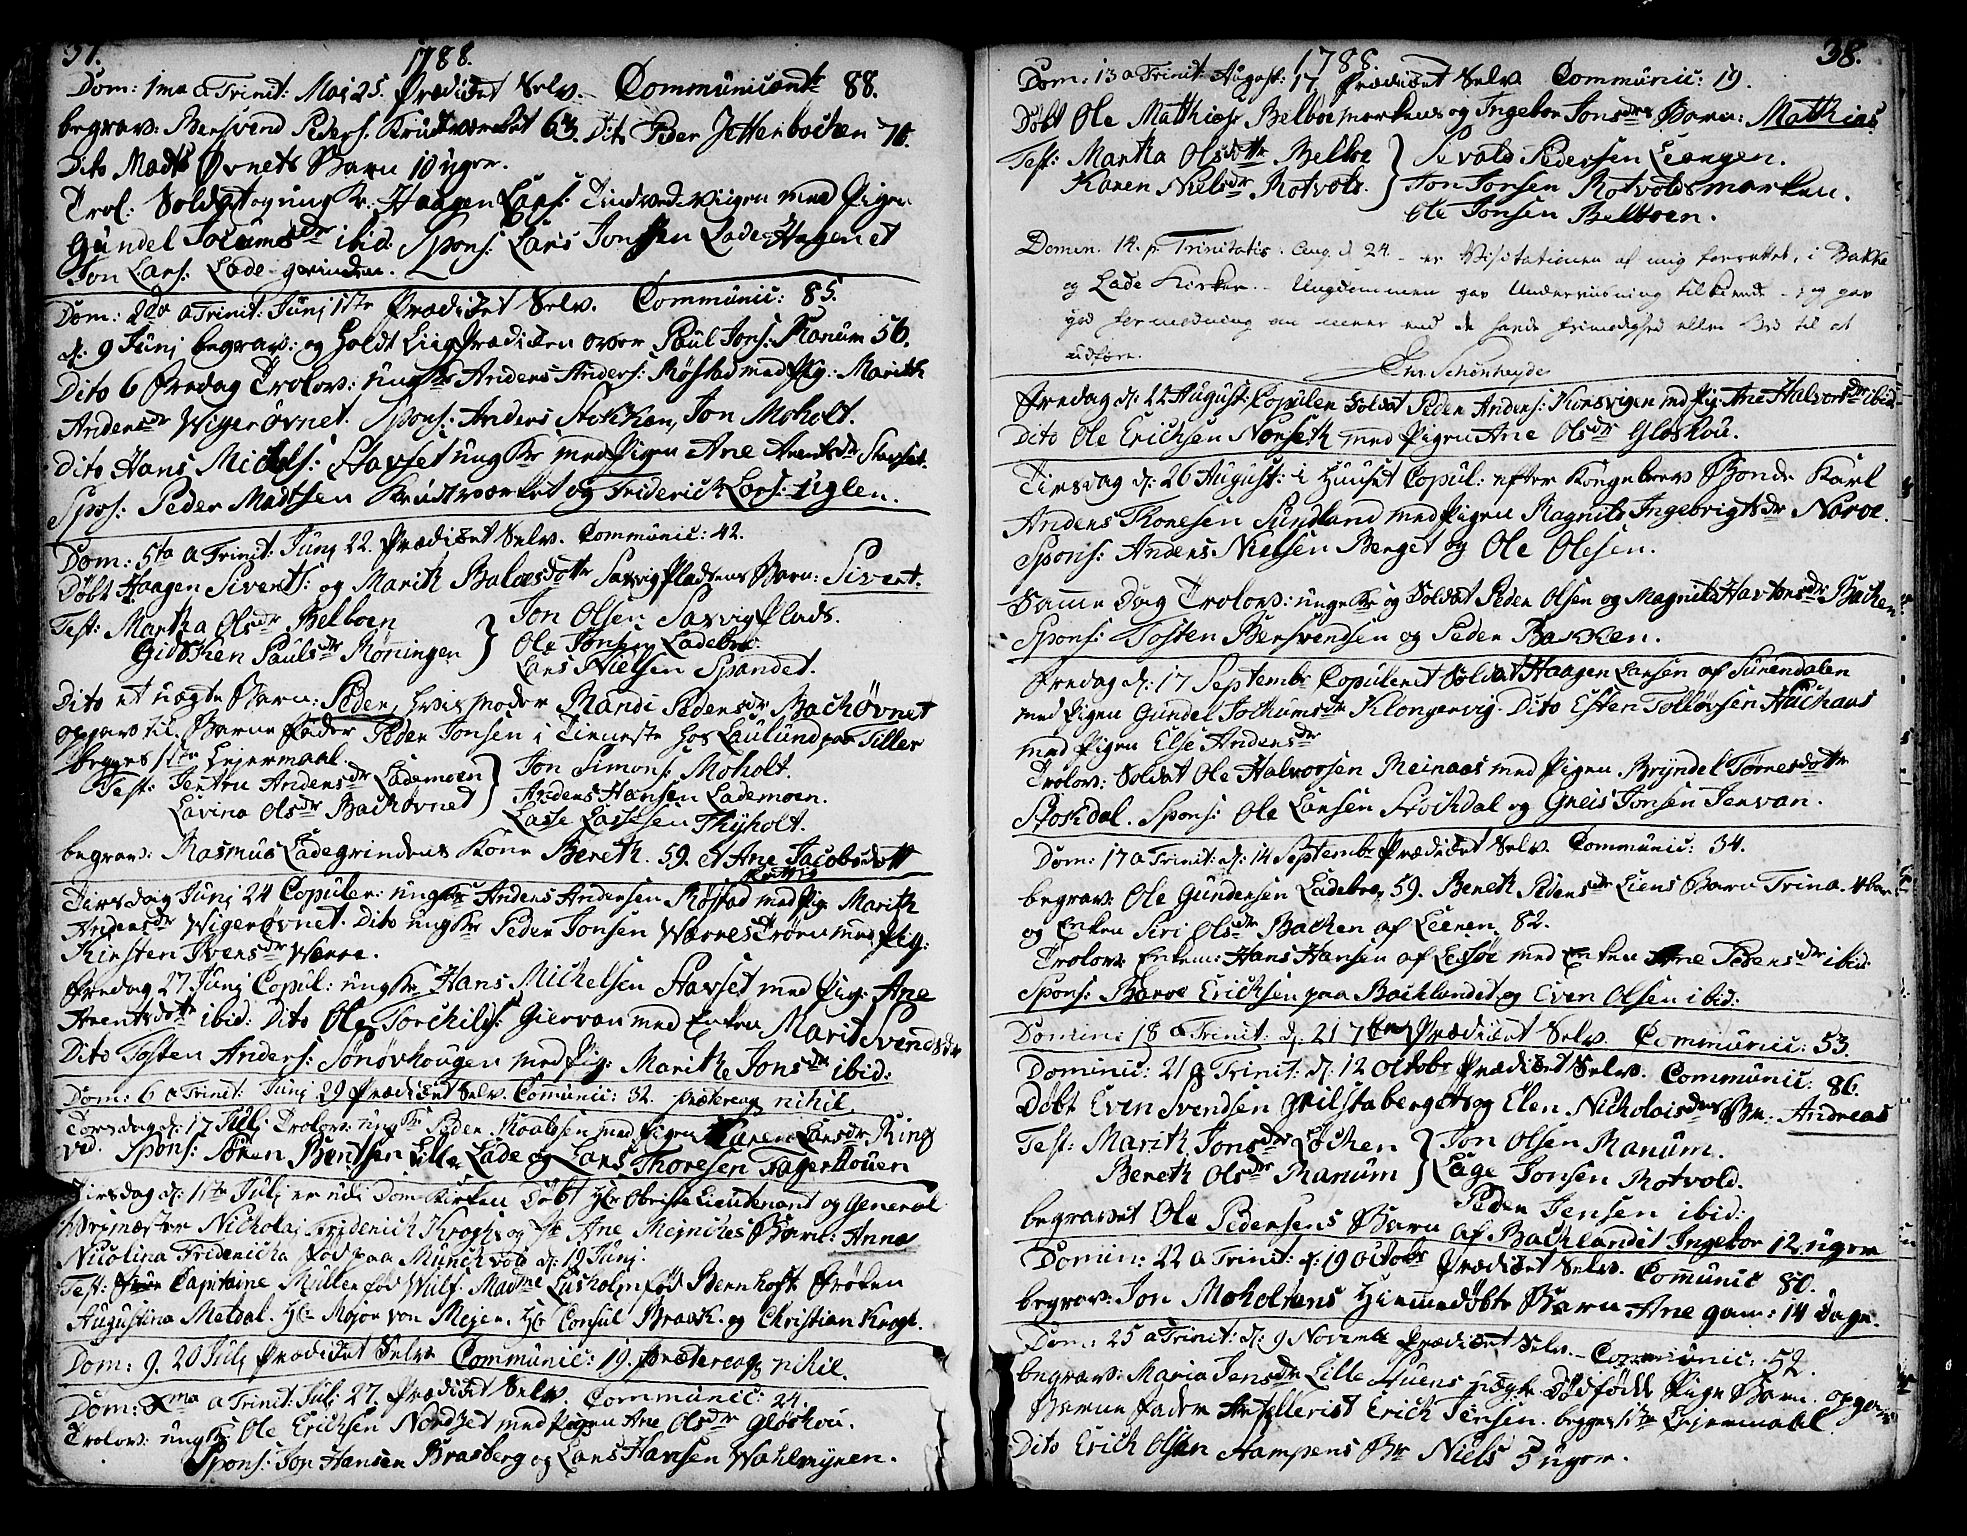 37.
1788.
Dom: 1ma a Trinit: Maj 25. Prædicet Selv. Communicent 88.
begrav: Bersvend Peders: Krudtværket 63. Dito Peder Jettenbachen 70.
Dito Madts Øvnets Barn 10 uger.
Trol: Soldat og ung Kr: Haagen Lars: Tindved-Viigen med Pigen
Gundel Jocumsdr ibid. Spons: Lars Jonsen Lade-Hagen et
Jon Lars: Lade-grinden.
Dom: 2da a Trinit: Junj 1ste Prædicet Selv. Communic: 85.
d: 9 Junj begrav: og holdt Liigprædicken over Paul Jons: Ranum 56.
Dito 6 Fredag Trolov: ungkr Anders Anders: Røstad med Pig: Marith
Andersdr Wigerøvnet. Spons: Anders Stokken, Jon Moholt.
Dito Hans Michels: Stavset ungkr med Pigen Ane Arentsdr Stavset.
Spos: Peder Madtsen Krudtværket og Friderich Lars: Uglen.
Dom: 5ta a Trinit: Junj 22. Prædicet Selv. Communic: 42.
Døbt Haagen Siverts: og Marith Balcersdottr Saxvigpladsens Barn: Sivert.
Test: Martha Olsdr Belboen } Jon Olsen Saxvigplads.
Gidsken Paulsdr Røningen Ole Jonsen Ladebr:
Lars Nielsen Spandet.
Dito et uægte Barn: Peder, hvis Moder Randi Pedersdr Bachøvnet
opgav til Barne Fader Peder Jonsen i Tieneste hos Laulund paa Tiller
begges 1ste Lejermaal.
Test: Jentru Andersdr Lademoen } Jon Simons: Moholt.
Lavina Olsdr Bachøvnet Anders Hansen Lademoen.
Lasse Lassesen Thyholt.
begrav: Rasmus Ladegrindens Kone Bereth. 59. et Ane Jacobsdott
Tirsdag Junj 24 Copuler: ungkr Anders Andersen Røstad med Pig: Marith
Andersdr Wigerøvnet. Dito ungkr Peder Jonsen Wærnes Trøen med Pig:
Kirsten Iversdr Werre.
Fredag 27 Junj Copul: ungkr Hans Michelsen Stavset med Pig: Ane
Arentsdottr ibid: Dito Ole Torchilds: Giervan med Enken Marit Svendsdr
Dito Tosten Anders: Sønøvhougen med Pig: Marithe Jonsdr ibid:
Dom: 6 a Trinit: Junj 29 Prædicet Selv. Comunic: 32. prætereaq nihil.
Torsdag d: 17 Julj Trolov: ungkr Peder Roaldsen med Pigen Karen Larsdr Ring
Spons: Søren Bentsen Lille Lade og Lars Thoresen Fagerhouen
Tirsdag d: Julj er udi Dom-Kirken Døbt Hr Obriste Lieutenant og General
Veimester Nicholaj Friderich Krogh og Fr Ane Mejnckes Barn: Anna
Nicolina Fridericha fød paa Munchvold d: 19 Junj.
Test: Frue Capitaine Müller fød Wulf. Madme Lysholm fød Bernhoft Frøken
Augustina Metdal. Hr Major von Mejer. Hr Consul Brack. og Christian Krogh.
Dom: 9. 20 Julj Prædicet Selv Communic: 19. prætereaq nihil.
Dom: Xma a Trinit: Julj 27. Prædicet Selv Communic: 24.
Trolov: ungkr Ole Erichsen Nordset med Pigen Ane Olsdr Gloshou.
Spons: Jon Hansen Brasberg og Lars Hansen Wahlmyren.
1788.
38.
Dom: 13 a Trinit: August: 17 Prædicet Selv. Communic: 19.
Døbt Ole Mathies: Belboemarkens og Ingebor Jonsdrs Barn: Mathias.
Test: Martha Olsdottr Belboe } Sivald Pedersen Leangen.
Karen Nielsdr Rotvold. Jon Jonsen Rotvoldsmarken.
Ole Jonsen Belboen.
Domin. 14. p. Trinitatis. Aug. d 24. er Visitationen af mig forrettet, i Bakke
og Lade Kirker. Ungdommen gav Underviisning tilkiende og gav
god formodning om meer end de havde frimodighed eller Ord til at
udføre.
Chr. Schønheyder
Fredag d: 22 August: Copuler Soldat Peder Anders: Korsvigen med Pig: Ane Halvorsdr ibid
Dito Ole Erichsen Norseth med Pigen Ane Olsdr Gloshou.
Tirsdag d: 26 August: i Huuset Copul: efter Kongebrev Bonde Karl
Anders Thoresen Sundland med Pigen Magnild Ingebrigtsdr Narve.
Spons: Anders Nielsen Berget og Ole Olesen.
Samme Dag Trolov: ungkr og Soldat Peder Olsen og Magnild Havorsdr Bachen
Spons: Tosten Bersvendsen og Peder Bakken.
Fredag d: 17 Septembr Copuleret Soldat Haagen Larsen af Surendalen
med Pigen Gundel Jochumsdr Klongervig. Dito Esten Tolløvsen Hachaus
med Pigen Else Andersdr
Trolov: Soldat Ole Halvorsen Reinaas med Pigen Bryndel Tørresdottr
Stokdal. Spons: Ole Larsen Stockdal og Gneis Jonsen Jervan.
Dom: 17 a Trinit: d: 14 Septembr Prædicet Selv Communic: 34.
begrav: Ole Gundersen Ladebr, 59. Bereth Pedersdr Liens Barn Trina.
og Enken Siri Olsdr Bachen af Leeren, 82.
Trolov: Enkem: Hans Hansen af Lesiøe med Enken Ane Pedersdr ibid
Spons: Baroe Erichsen paa Backlandet og Even Olsen ibid:
Domin: 18 a Trinit: d. 21 7br Prædicet Selv. Communic: 53.
Dominic: 21 a Trinit: d: 12 Octobr Prædicet Selv. Communic: 86.
Døbt Even Svendsen Hvilstabergets og Elen Nicholaisdrs Bn. Andreas
Test: Marith Jonsdr Løchen } Jon Olsen Ranum.
Bereth Olsdr Ranum Lage Jonsen Rotvold.
Peder Jensen ibid:
begravet Ole Pedersens Barn af Bachlandet Ingebor 12 uger
Domin: 22 a Trinit: d: 19 Octobr Prædicet Selv. Comunic 80.
begrav: Jon Moholtens Hiemmedøbte Barn Ane gam: 14 Dage.
Dom: 25 a Trinit: d: 9 Novembr Prædicet Selv. Communic: 52.
begrav: Maria Jensdr Lille Huens uægte Dødfødt Pige Barn. opgav
Barne Fader Artillerist Erich Jensen. begges 1ste Lejermaal.
Dito Erich Olsen Stampens Bn Niels 5 uger.